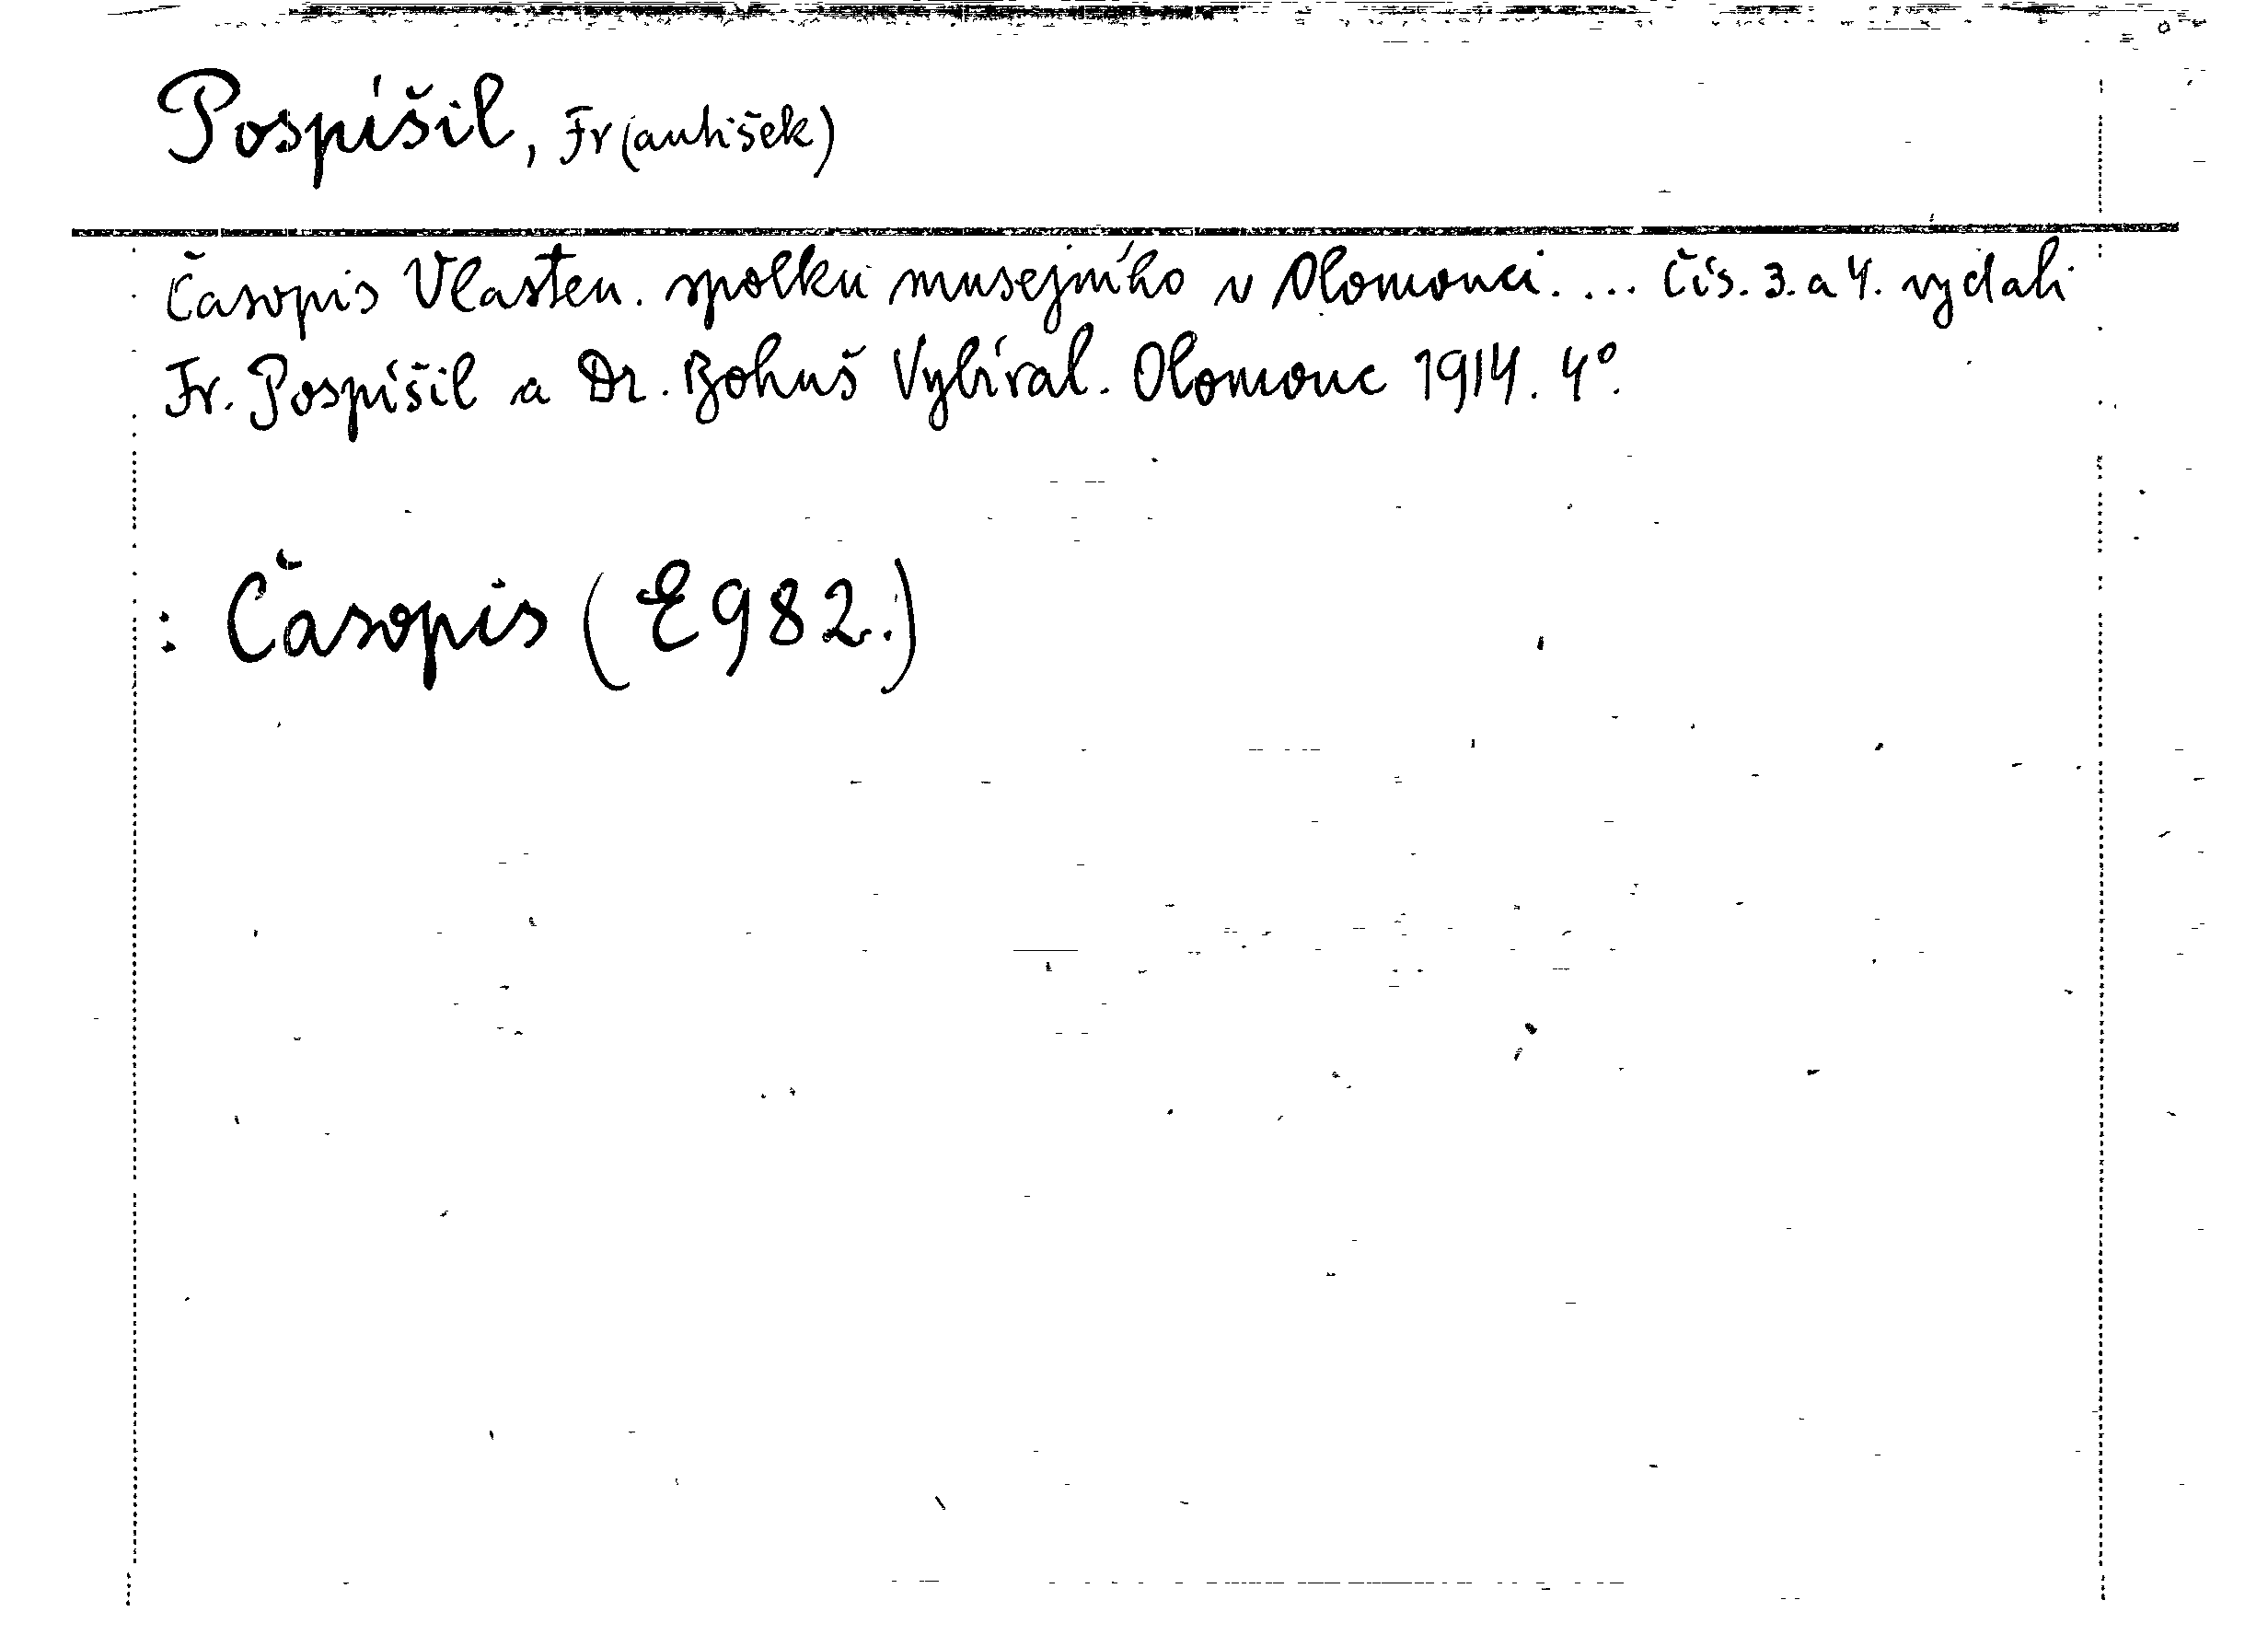 Pospíšil, Fr(antišek)
Časopis Vlasten. spolku musejního v Olomouci. ... Čís. 3. a 4. vydali
Fr. Pospíšil a Dr. Bohuš Vybíral. Olomouc 1914. 4°.
: Časopis (E982.)